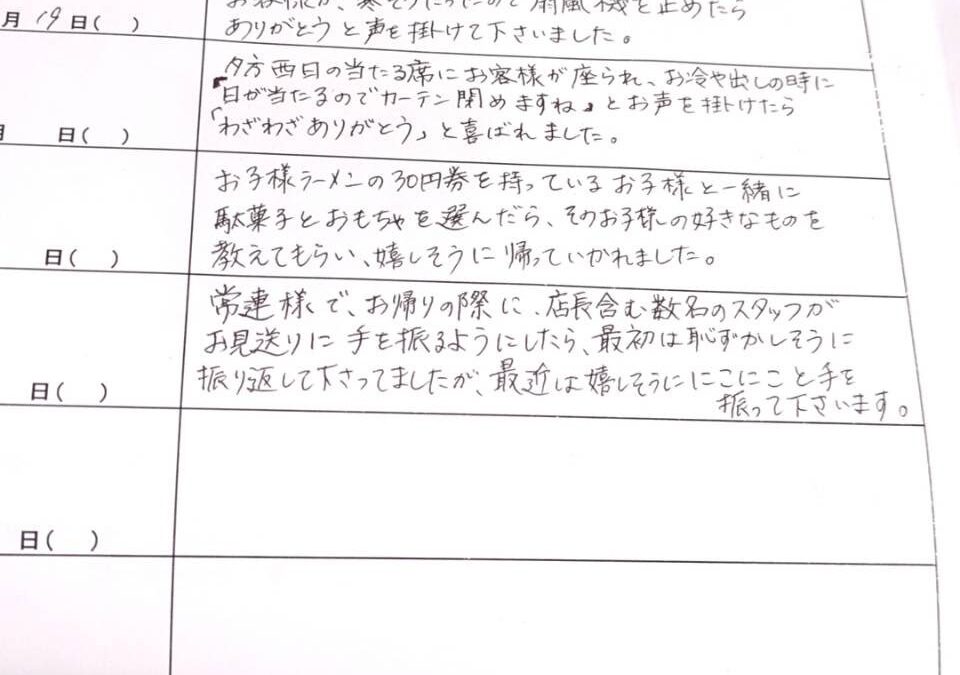 お客様が、寒そうだったので扇風機を止めたら
月19日( ) ありがとうと声を掛けて下さいました。
夕方西日の当たる席にお客様が座られ、お冷や出しの時に
「日が当たるのでカーテン閉めますね」とお声を掛けたら
月 日( ) 「わざわざありがとう」と喜ばれました。
お子様ラーメンの30円券を持っているお子様と一緒に
駄菓子とおもちゃを選んだら、そのお子様の好きなものを
日( ) 教えてもらい、嬉しそうに帰っていかれました。
常連様で、お帰りの際に、店長含む数名のスタッフが
お見送りに手を振るようにしたら、最初は恥ずかしそうに
日( ) 振り返して下さってましたが、最近は嬉しそうににこにこと手を
振って下さいます。
日( )